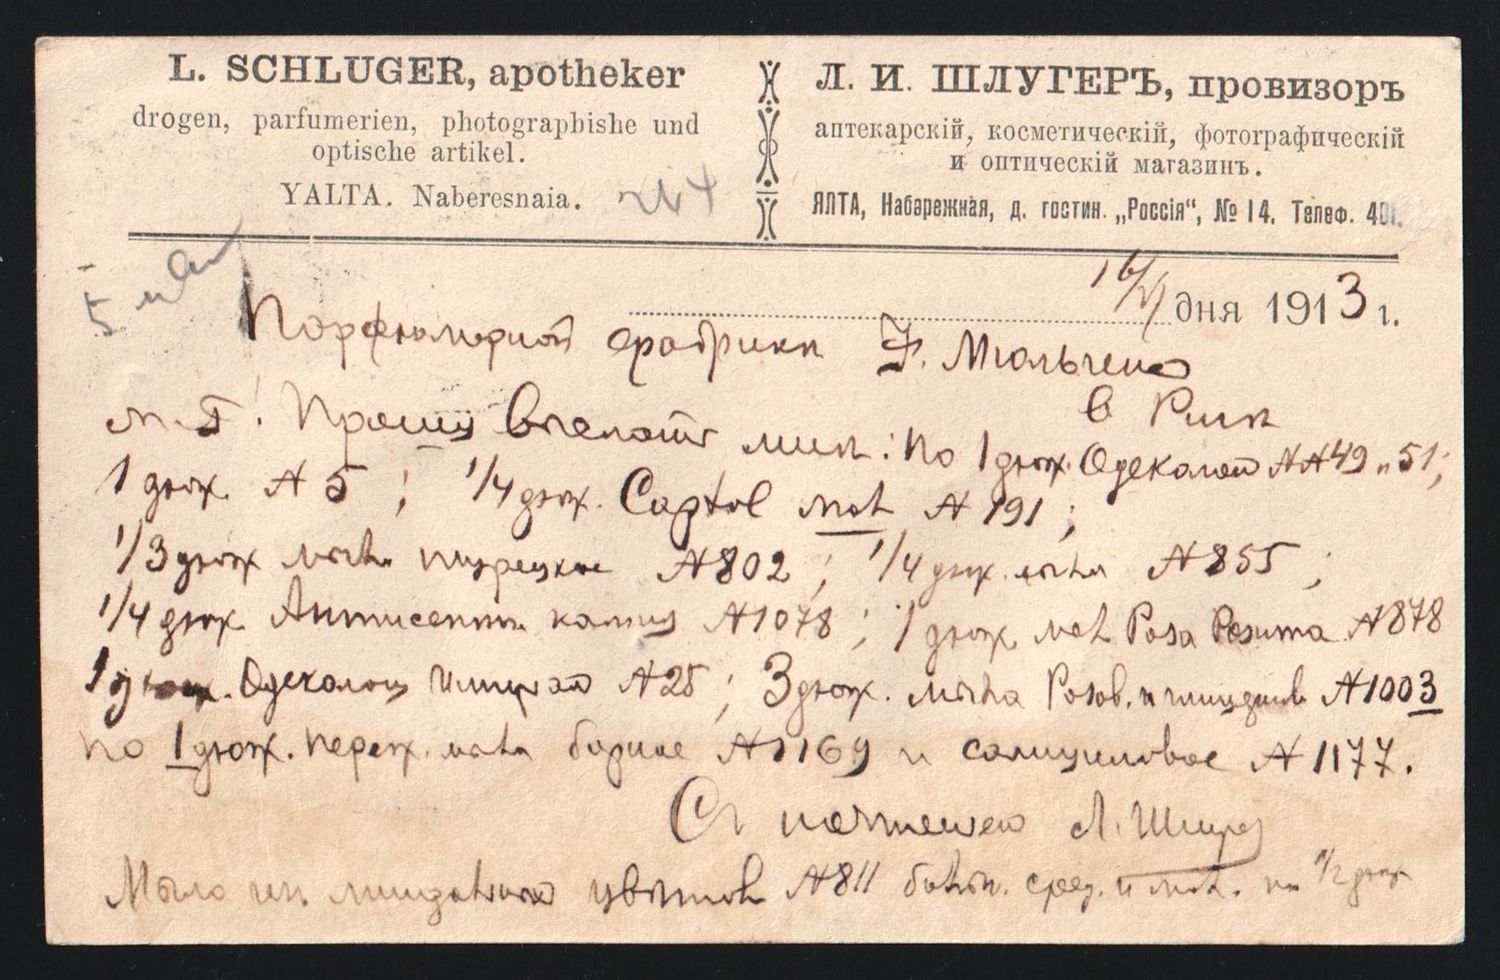 L. SCHLUGER, apotheker
drogen, parfumerien, photographishe und
optische artikel.
YALTA. Naberesnaia.
Л. И. ШЛУГЕРЪ, провизоръ
аптекарскій, косметическій, фотографическій
и оптическій магазинъ.
ЯЛТА, Набережная, д. гостин. „Россія“, № 14. Телеф. 401.
16/VI дня 1913 г.
Парфюмерной фабрики Ф. Мюльгенс
в Риги
М. Г! Прошу выслать мнѣ: по 1 дюж. Одеколон №№ 49 и 51;
1 дюж. № 5; 1/4 дюж. Captol № 191;
1/3 дюж мыла турецкое № 802; 1/4 дюж. мыла № 855;
1/4 дюж № 1078; 1 дюж. мыл Роза № 878
1 дюж. Одеколон № 25; 3 дюж. мыла Розов. и глицерин № 1003
по 1 дюж. мыла борное № 1169 и салициловое № 1177.
С почтением Л. Шлугер
Мыло из цвѣтов № 811 сред. и мал. по 1/2 дюж